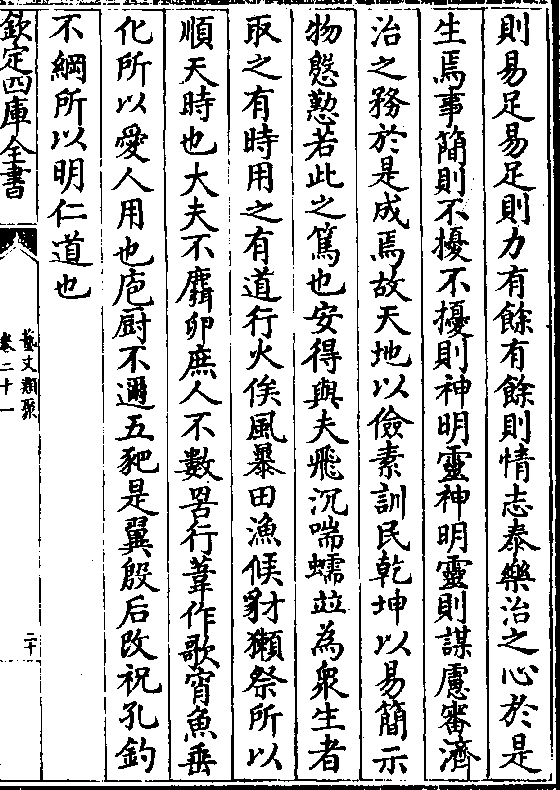 則易足易足則力有餘有餘則情志泰樂治之心於是
生焉事簡則不擾不擾則神明靈神明靈則謀慮審濟
治之務於是成焉故天地以儉素訓民乾坤以易簡示
物慇懃若此之篤也安得與夫飛沉喘蠕並為衆生者
取之有時用之有道行火俟風暴田漁候豺獺祭所以
順天時也大夫不麛卵庶人不數罟行葦作歌宵魚垂
化所以愛人用也庖厨不邇五豝是翼殷后改祝孔釣
不綱所以明仁道也
欽定四庫全書
藝文類聚
卷二十一
二十